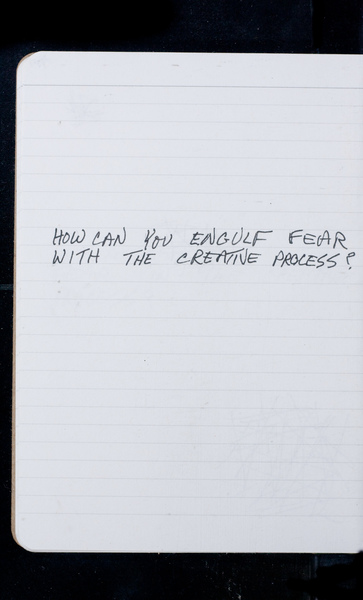 HOW CAN YOU ENGULF FEAR
WITH THE CREATIVE PROCESS?